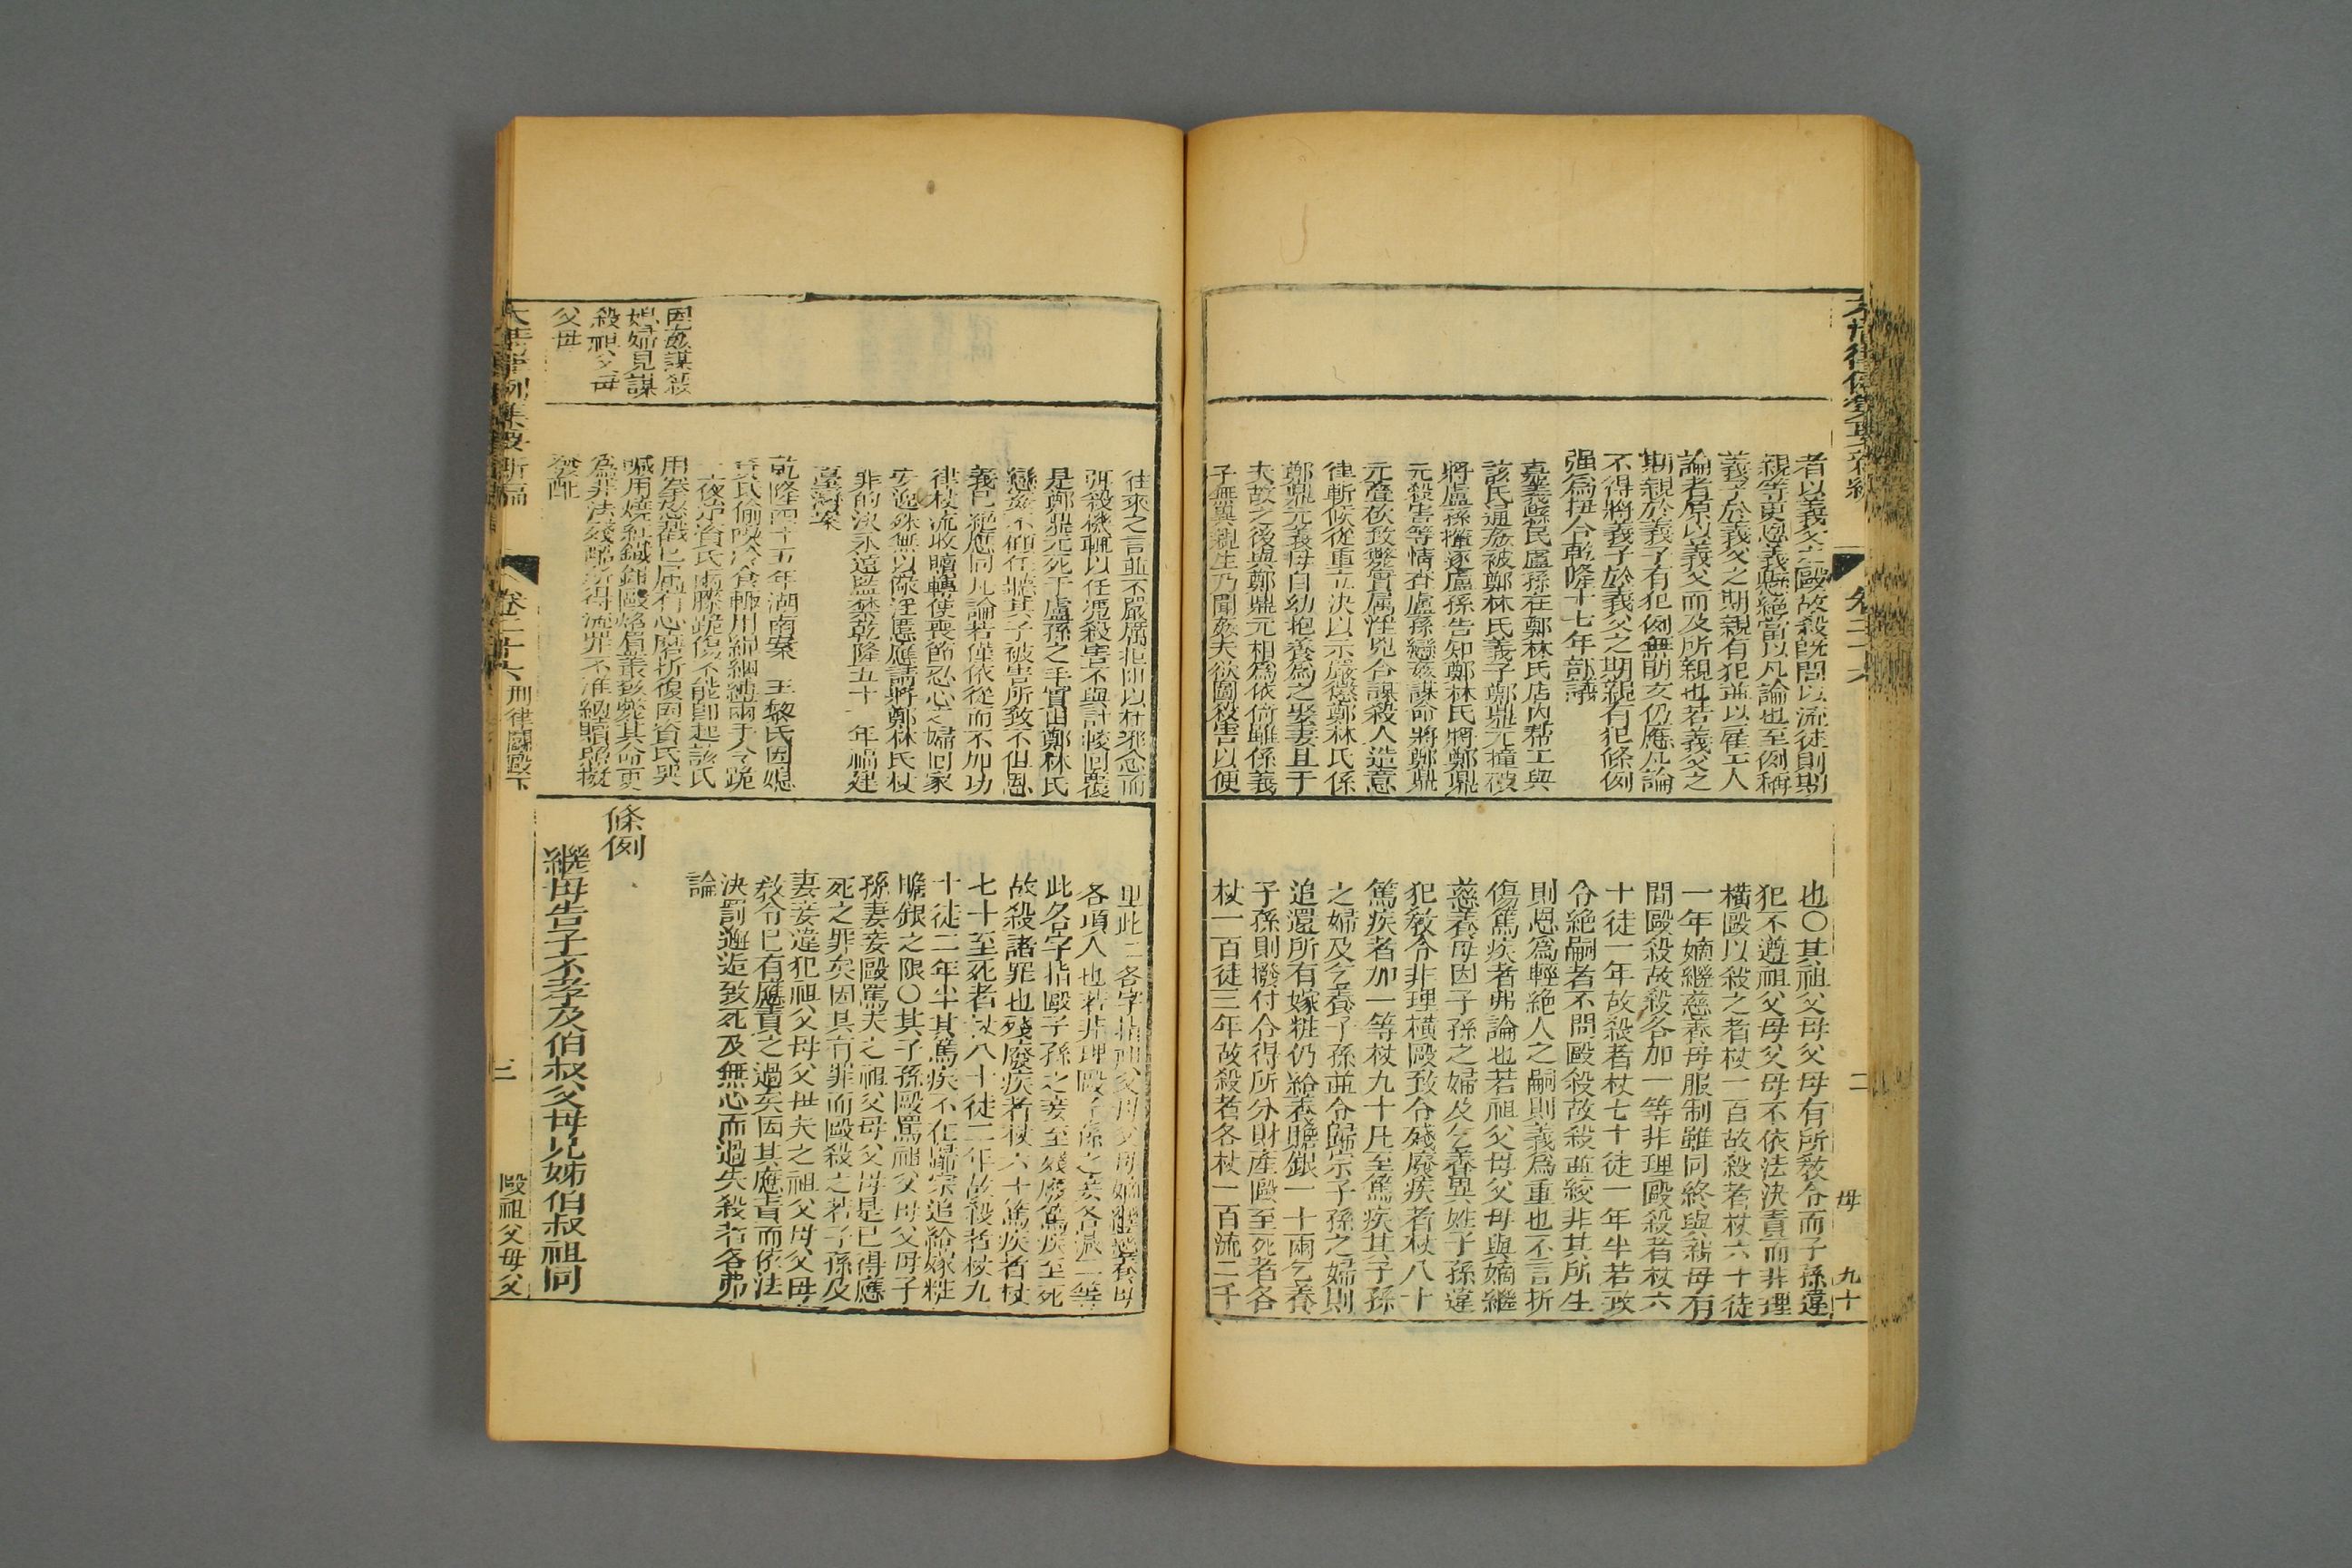 者以義父之毆故殺既問以流徒則期
親等更恩義懸絕當以凡論也至例稱
義子於義父之期親有犯並以雇工人
論者原以義父而及所親也若義父之
期親於義子有犯例無明文仍應凡論
不得將義子於義父之期親有犯條例
强為扭合乾隆十七年部議
嘉義縣民盧孫在鄭林氏店内幇工與
該氏通姦被鄭林氏義子鄭鼎元撞破
將盧孫攆逐盧孫告知鄭林氏將鄭鼎
元殺害等情查盧孫戀姦謀命將鄭鼎
元疊砍致斃實属淫兇合謀殺人造意
律斬候從重立决以示嚴懲鄭林氏係
鄭鼎元義母自幼抱養為之娶妻且于
夫故之後與鄭鼎元相為依倚雖係義
子無異親生乃聞姦夫欲圖殺害以便
也〇其祖父母父母有所教令而子孫違
犯不遵祖父母父母不依法決責而非理
橫毆以殺之者杖一百故殺者杖六十徒
一年嫡繼慈養母服制雖同終與親母有
間毆殺故殺各加一等非理毆殺者杖六
十徒一年故殺者杖七十徒一年半若致
令絕嗣者不問毆殺故殺並絞非其所生
則恩為輕絕人之嗣則義為重也不言折
傷篤疾者弗論也若祖父母父母與嫡繼
慈養母因子孫之婦及乞養異姓子孫違
犯教令非理橫毆致令殘廢疾者杖八十
篤疾者加一等杖九十凡至篤疾其子孫
之婦及乞養子孫並令歸宗子孫之婦則
追還所有嫁粧仍給養贍銀一十兩乞養
子孫則撥付合得所分財產毆至死者各
杖一百徒三年故殺者各杖一百流二千
二
母
九十
往來之言並不嚴厲拒回以杜邪念而
弭殺機輒以任憑殺害不與計較囘覆
是鄭鼎元死于盧孫之手實由鄭林氏
戀姦不顧任聽其子被害所致不但恩
義已絕應同凡論若僅依從而不加功
律杖流收贖轉使喪節忍心之婦囘家
安逸殊無以儆淫慝應請將鄭林氏杖
非的決永遠監禁乾隆五十 年福建
臺灣案
因姦謀殺
媳婦見謀
殺祖父母
父母
乾隆四十五年湖南案 王黎氏因媳
資氏偷喫冷食輙用繩綑縛兩手令跪
一夜至資氏兩膝跪傷不能即起該氏
用拳忿戳已属有心磨折復因資氏哭
喊用燒紅鐵鉗毆烙眉叢致斃其命更
為非法殘酷所得流罪不准納贖照擬
發配
里此二各字指祖父母父母嫡繼慈養母
各項人也若非理毆子孫之妾各減二等
此各字指毆子孫之妾至殘廢篤疾至死
故殺諸罪也殘廢疾者杖六十篤疾者杖
七十至死者杖八十徒二年故殺者杖九
十徒二年半其篤疾不在歸宗追給嫁粧
贍銀之限〇其子孫毆罵祖父母父母子
孫妻妾毆罵夫之祖父母父母是已得應
死之罪矣因其有罪而毆殺之若子孫及
妻妾違犯祖父母父母夫之祖父母父母
教令已有應責之過矣因其應責而依法
決罰邂逅致死及無心而過失殺者各弗
論
條例
繼母告子不孝及伯叔父母兄姊伯叔祖同
卷二十六 刑律鬪毆下
三
毆祖父母父